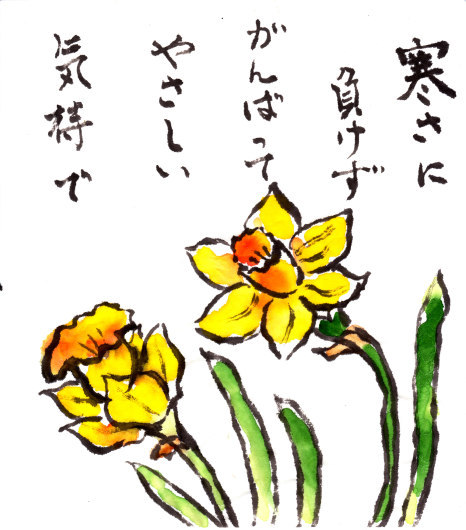 寒さに
負けず
がんばって
やさしい
気持で